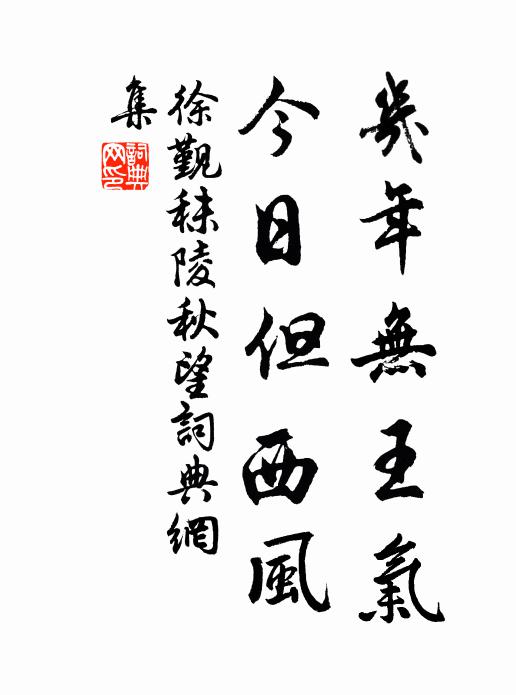 幾年無王氣
今日但西風
徐觀秣陵秋望詞典網
集
詞典网印